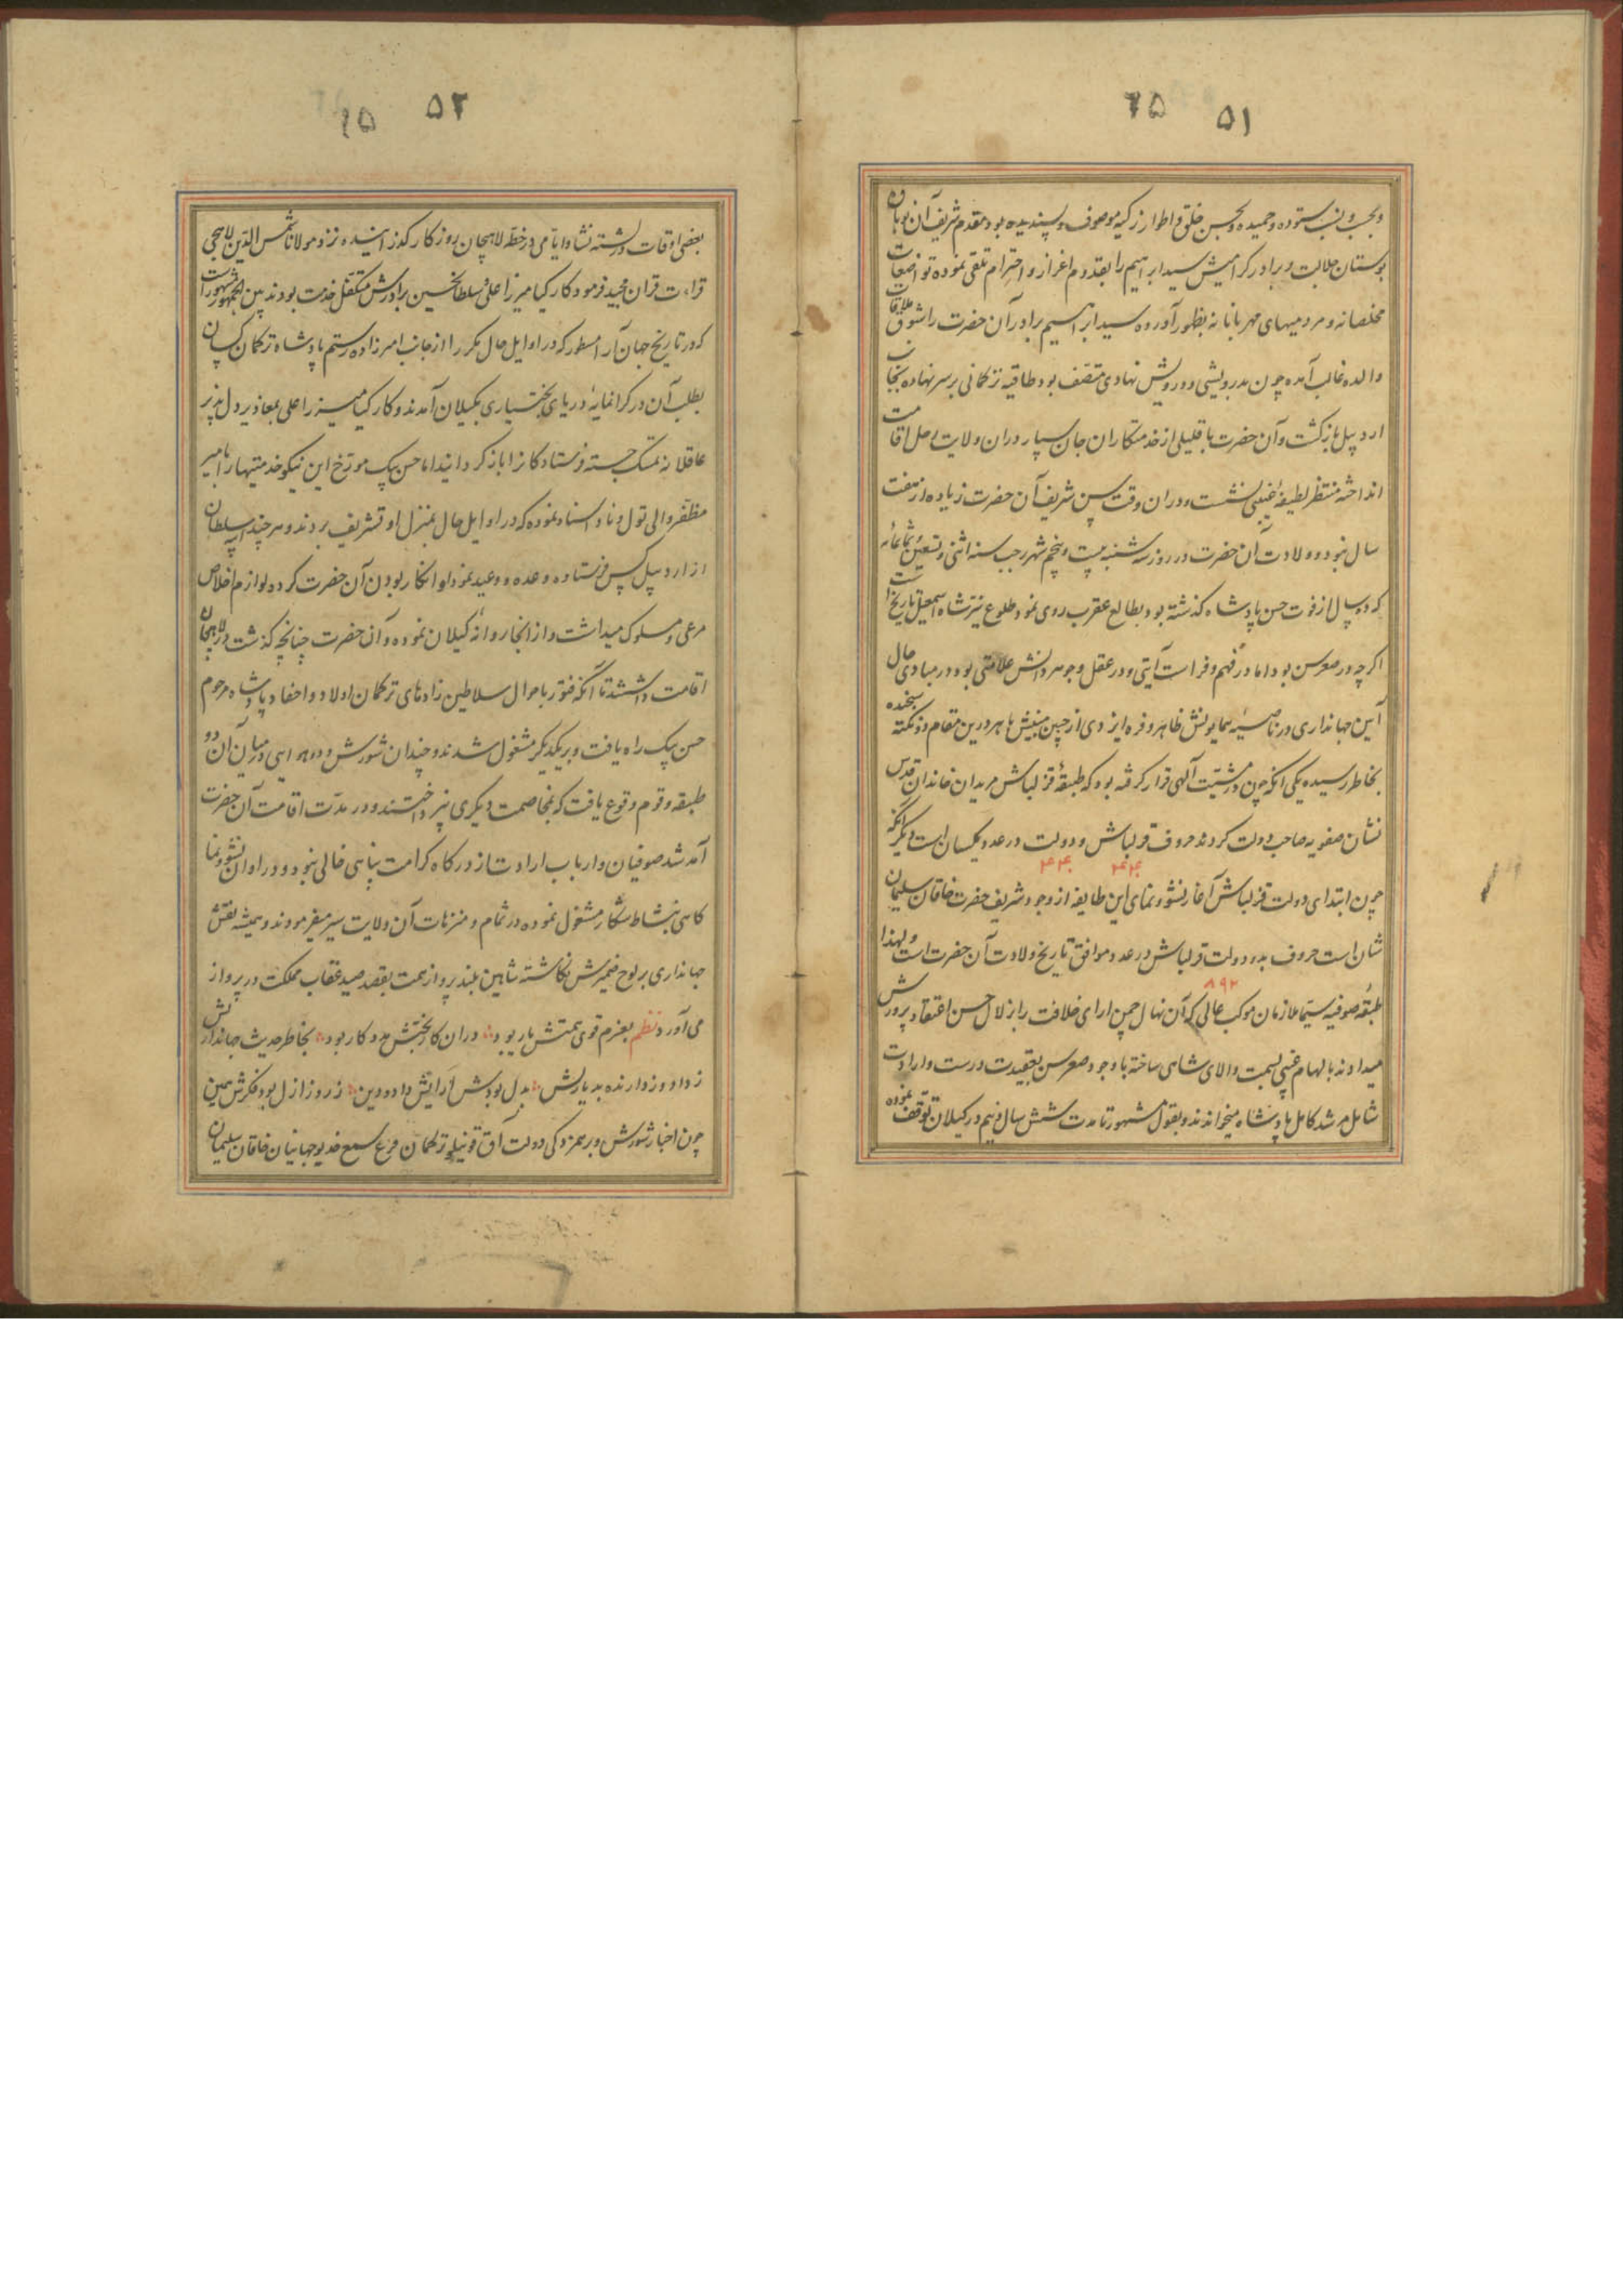 ۵۱ ۲۵
و بحسب و نسب ستوده و حمیده و بحسن خلق و اطوار زکیه موصوف و پسندیده بود مقدم شریف آن نوباوه
بوستان جلالت و برادر کرامیش سید ابراهیم را بقدوم اعزاز و احترام تلقی نموده تواضعات
مخلصانه و مردمیهای مهربانانه بظهور آورده سید ابراهیم برادر آن حضرت را شوق ملاقات
والده غالب آمده چون بدرویشی و درویش نهادی متصف بود طاقیه ترکمانی بر سر نهاده بجانب
اردبیل بازگشت و آن حضرت با قلیلی از خدمتکاران جان سپار در ان ولایت رحل اقامت
انداخته منتظر لطیفه غیبی نشست و در ان وقت سن شریف آن حضرت زیاده از هفت
سال نبود و ولادت آن حضرت در روز سه شنبه بیست و پنجم شهر رجب سنه اثنی و تسعین ثمانمائه
که ده سال از فوت حسن پادشاه گذشته بود بطالع عقرب روی نمود طلوع نیر شاه اسمعیل تاریخ است
اکر چه در صغر سن بود اما در فهم و فراست آیتی و در عقل و جوهر دانش علامتی بود در مبادی حال
آیین جهانداری در ناصیه همایونش ظاهر و فره ایزدی از جبین مبینش باهر درین مقام دو نکته سنجیده
بخاطر رسیده یکی انکه چون در مشیت آلهی قرار کرفته بود که طبقه قزلباش مریدان خاندان قدس
نشان صفویه صاحب دولت کردند حروف قزلباش و دولت در عدد یکسان است دیگر انکه
۴۴۰ ۴۴۰
چون ابتدای دولت قزلباش آغاز نشو و نمای این طایفه از وجود شریف حضرت خاقان سلیمان
شان است حروف بدو دولت قزلباش در عدد موافق تاریخ ولادت آن حضرت است و لهذا
۸۹۲
طبقه صوفیه سیما ملازمان موکب عالی که آن نهال چمن ارای خلافت را بزلال حسن اعتقاد پرورش
میدادند بالهام غیبی بسمت والای شاهی ساخته با وجود صغر سن بعقیدت درست و ارادت
شامل مرشد کامل پادشاه میخواندند و بقول مشهور تا مدت شش سال و نیم در کیلان توقف نموده
۵۲ ۶۵
بعضی اوقات در رشته نشا و ایامی در خطه لاهجان روزکار کذرانیده نزد مولانا شمس الدین لاهجی
قراءت قران مجید فرمود کارکیا میرزا علی و سلطانحسین برادرش متکفل خدمت بودند بین الجمهور مشهور است
که در تاریخ جهان آرا مسطور که در اوایل حال مکررا از جانب امیرزاده رستم پادشاه ترکمان کسان
بطلب آن در کرانمایه دریای بختیاری بکیلان آمدند و کارکیا میرزا علی بمعاذیر دل پذیر
عاقلانه تمسک جسته فرستادکانرا باز کردانیدند اما حسن بیک مورخ این نیکو خدمتیها را بامیر
مظفر والی تول و ناو اسناد نموده که در اوایل حال بمنزل او تشریف بردند و هر چند ایبه سلطان
از اردبیل کس فرستاده وعده و وعید نمود او انکار بودن آن حضرت کرده لوازم اخلاص
مرعی و مسلوک میداشت و از انجا روانه کیلان نموده و آن حضرت چنانچه کذشت در لاهجان
اقامت داشتند تا آنکه فتور باحوال سلاطین زادهای ترکمان اولاد و احفاد پادشاه مرحوم
حسن بیک راه یافت و بر یکدیکر مشغول شدند و چندان شورش و در میان آن دو
طبقه و قوم وقوع یافت که بمخاصمت دیکری نپرداختند و در مدت اقامت آن حضرت
آمد شد صوفیان و ارباب ارادت از درکاه کرامت پناهی خالی نبود و در اوان نشو و نما
کاهی بنشاط شکار مشغول نموده در تمام و منزهات آن ولایت سیر میفرمودند و همیشه نقش
جهانداری بر لوح ضمیرش نکاشته شاهین بلند پرواز همت بقصد صید عقاب مملکت در پرواز
می آورد نظم بعزم قوی همتش یار بود در ان کار بختش مددکار بود بخاطر حدیث جهانداریش
ز دادو ز دارنده بد یاریش بدل بودش آرایش داد و دین ز روز ازل بود فکرش همین
چون اخبار شورش و برهمزدکی دولت آق قوینلو ترکمان قرع سمع خدیو جهانیان خاقان سلیمان